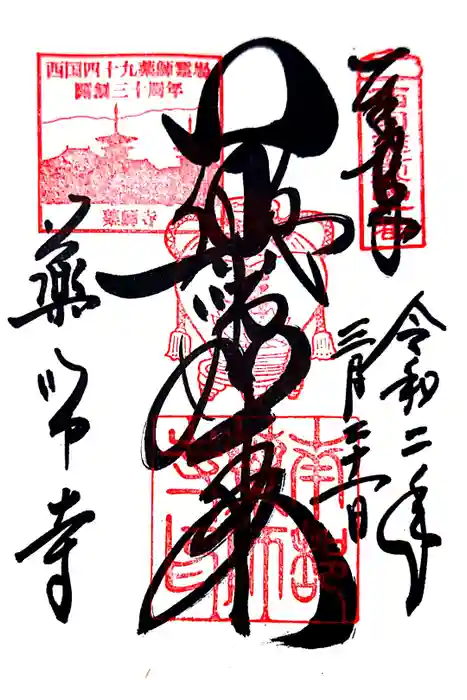 奉拝
令和二年
三月二十一日
薬師如来
薬師寺
西国四十九薬師霊場
開創三十周年
薬師寺